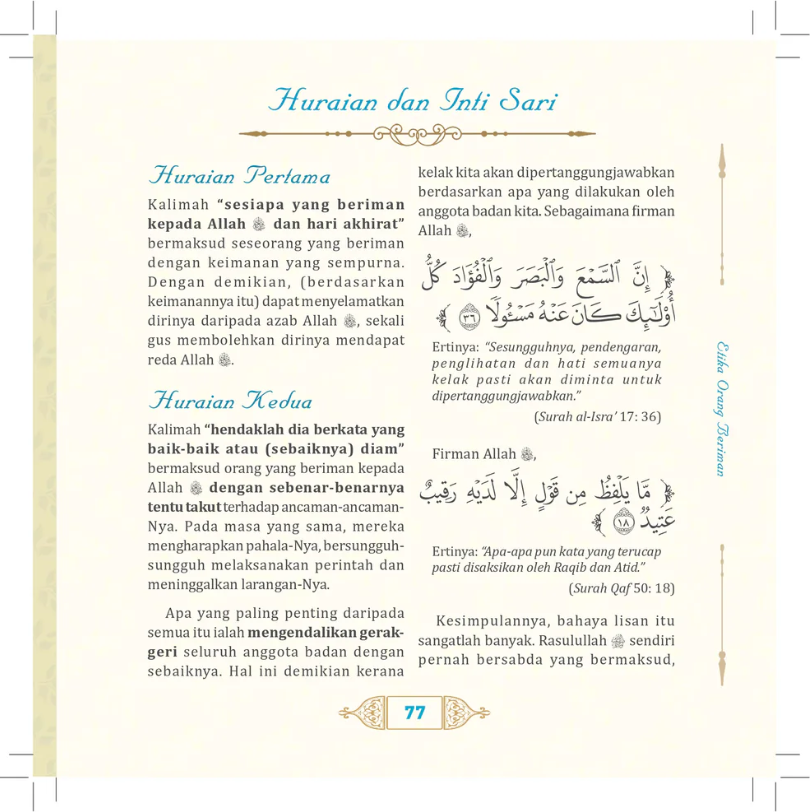 Huraian dan Inti Sari
Huraian Pertama
Kalimah “sesiapa yang beriman
kepada Allah ﷻ dan hari akhirat”
bermaksud seseorang yang beriman
dengan keimanan yang sempurna.
Dengan demikian, (berdasarkan
keimanannya itu) dapat menyelamatkan
dirinya daripada azab Allah ﷻ, sekali
gus membolehkan dirinya mendapat
reda Allah ﷻ.
Huraian Kedua
Kalimah “hendaklah dia berkata yang
baik-baik atau (sebaiknya) diam”
bermaksud orang yang beriman kepada
Allah ﷻ dengan sebenar-benarnya
tentu takut terhadap ancaman-ancaman-
Nya. Pada masa yang sama, mereka
mengharapkan pahala-Nya, bersungguh-
sungguh melaksanakan perintah dan
meninggalkan larangan-Nya.
Apa yang paling penting daripada
semua itu ialah mengendalikan gerak-
geri seluruh anggota badan dengan
sebaiknya. Hal ini demikian kerana
kelak kita akan dipertanggungjawabkan
berdasarkan apa yang dilakukan oleh
anggota badan kita. Sebagaimana firman
Allah ﷻ,
﴿ إِنَّ ٱلسَّمْعَ وَٱلْبَصَرَ وَٱلْفُؤَادَ كُلُّ
أُوْلَٰٓئِكَ كَانَ عَنْهُ مَسْـُٔولًا ٣٦ ﴾
Ertinya: “Sesungguhnya, pendengaran,
penglihatan dan hati semuanya
kelak pasti akan diminta untuk
dipertanggungjawabkan.”
(Surah al-Isra’ 17: 36)
Firman Allah ﷻ,
﴿ مَّا يَلْفِظُ مِن قَوْلٍ إِلَّا لَدَيْهِ رَقِيبٌ
عَتِيدٌ ١٨ ﴾
Ertinya: “Apa-apa pun kata yang terucap
pasti disaksikan oleh Raqib dan Atid.”
(Surah Qaf 50: 18)
Kesimpulannya, bahaya lisan itu
sangatlah banyak. Rasulullah ﷺ sendiri
pernah bersabda yang bermaksud,
Etika Orang Beriman
77